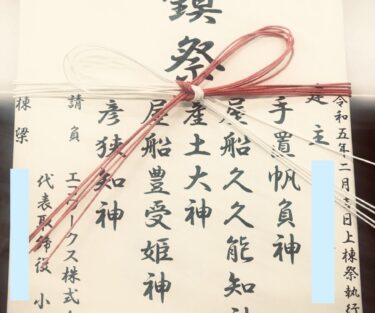 鎮祭
令和五年二月吉日上棟祭執行
建主
手置帆負神
屋船久久能知
産土大神
屋船豊受姫神
彦狭知神
請負 エコワークス株式
代表取締役 小
棟梁